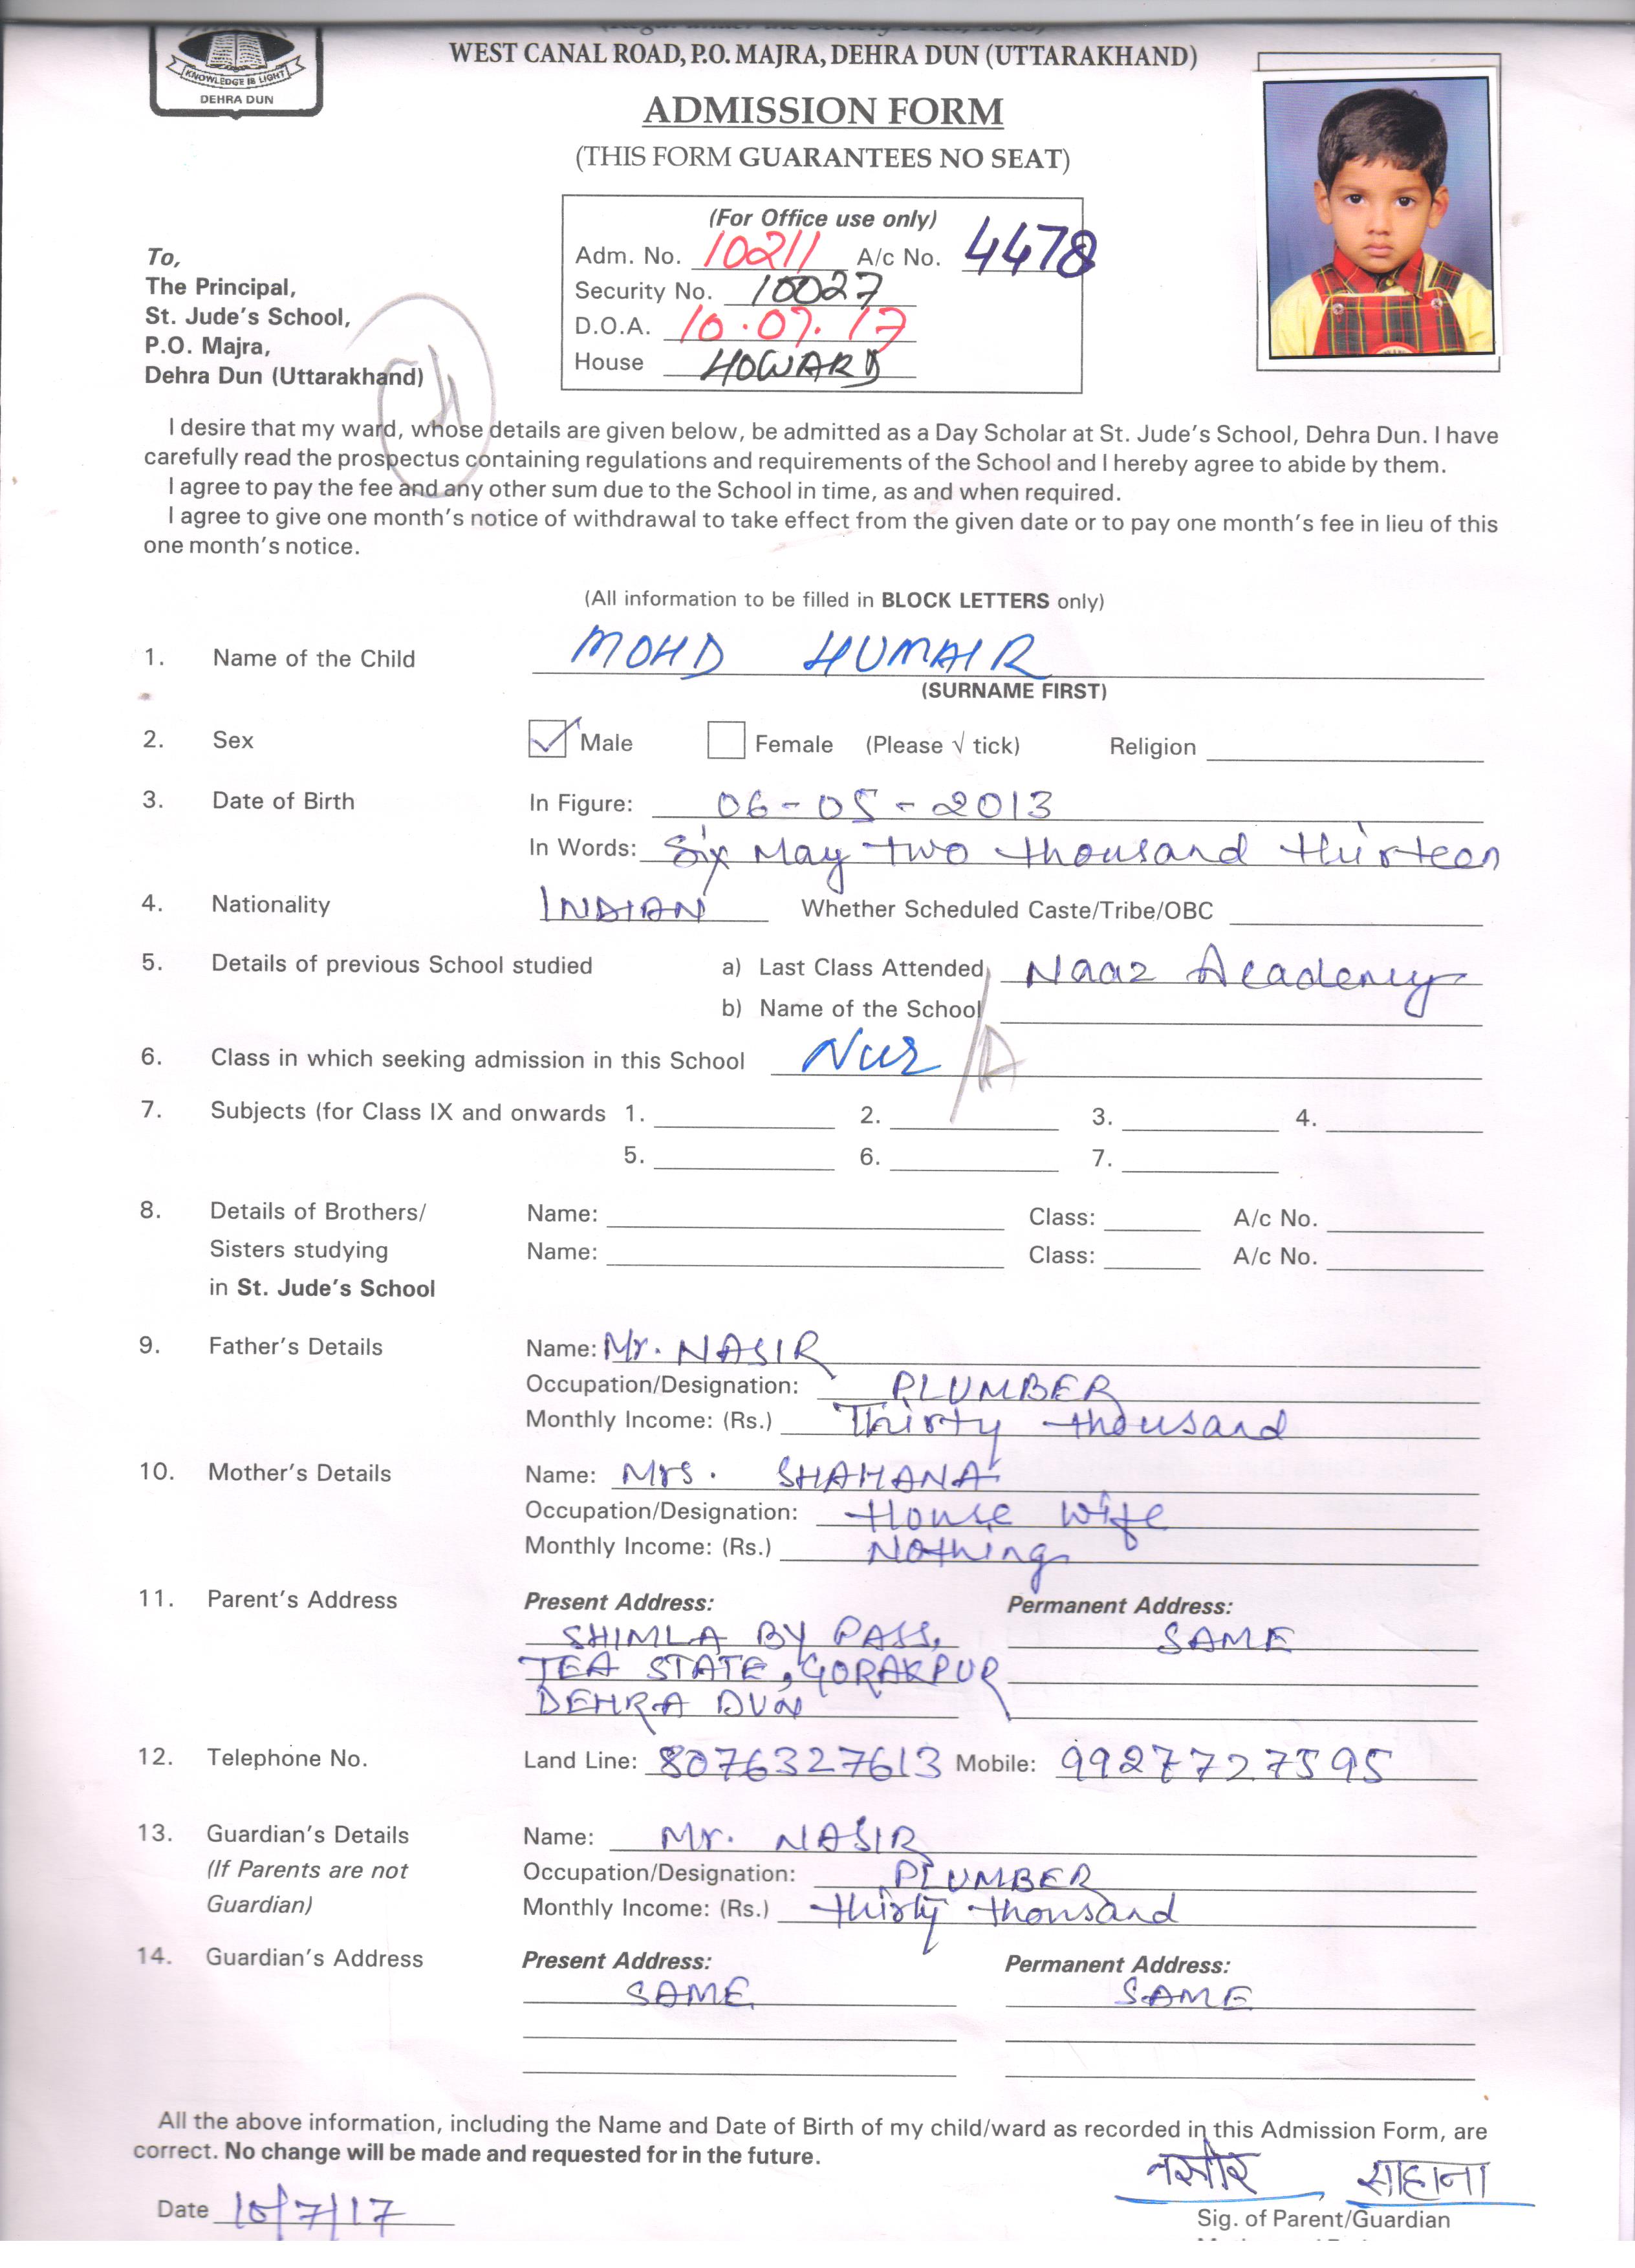 KNOWLEDGE IS LIGHT
DEHRA DUN
WEST CANAL ROAD, P.O. MAJRA, DEHRA DUN (UTTARAKHAND)
ADMISSION FORM
(THIS FORM GUARANTEES NO SEAT)
(For Office use only)
Adm. No. 10211 A/c No. 4478
Security No. 10027
D.O.A. 10.07.17
House HOWARD
To,
The Principal,
St. Jude's School,
P.O. Majra,
Dehra Dun (Uttarakhand)
I desire that my ward, whose details are given below, be admitted as a Day Scholar at St. Jude's School, Dehra Dun. I have
carefully read the prospectus containing regulations and requirements of the School and I hereby agree to abide by them.
I agree to pay the fee and any other sum due to the School in time, as and when required.
I agree to give one month's notice of withdrawal to take effect from the given date or to pay one month's fee in lieu of this
one month's notice.
(All information to be filled in BLOCK LETTERS only)
1. Name of the Child MOHD HUMAIR
(SURNAME FIRST)
2. Sex Male Female (Please √ tick) Religion
3. Date of Birth In Figure: 06-05-2013
In Words: Six May two thousand thirteen
4. Nationality INDIAN Whether Scheduled Caste/Tribe/OBC
5. Details of previous School studied a) Last Class Attended Naaz Academy
b) Name of the School
6. Class in which seeking admission in this School Nur / A
7. Subjects (for Class IX and onwards 1. 2. 3. 4.
5. 6. 7.
8. Details of Brothers/ Name: Class: A/c No.
Sisters studying Name: Class: A/c No.
in St. Jude's School
9. Father's Details Name: Mr. NASIR
Occupation/Designation: PLUMBER
Monthly Income: (Rs.) Thirty thousand
10. Mother's Details Name: Mrs. SHAHANA
Occupation/Designation: House wife
Monthly Income: (Rs.) Nothing
11. Parent's Address Present Address: Permanent Address:
SHIMLA BY PASS, SAME
TEA STATE, GORAKPUR
DEHRA DUN
12. Telephone No. Land Line: 8076327613 Mobile: 9927727595
13. Guardian's Details Name: Mr. NASIR
(If Parents are not Occupation/Designation: PLUMBER
Guardian) Monthly Income: (Rs.) thirty thousand
14. Guardian's Address Present Address: Permanent Address:
SAME SAME
All the above information, including the Name and Date of Birth of my child/ward as recorded in this Admission Form, are
correct. No change will be made and requested for in the future.
नसीर साहाना
Date 10/7/17 Sig. of Parent/Guardian